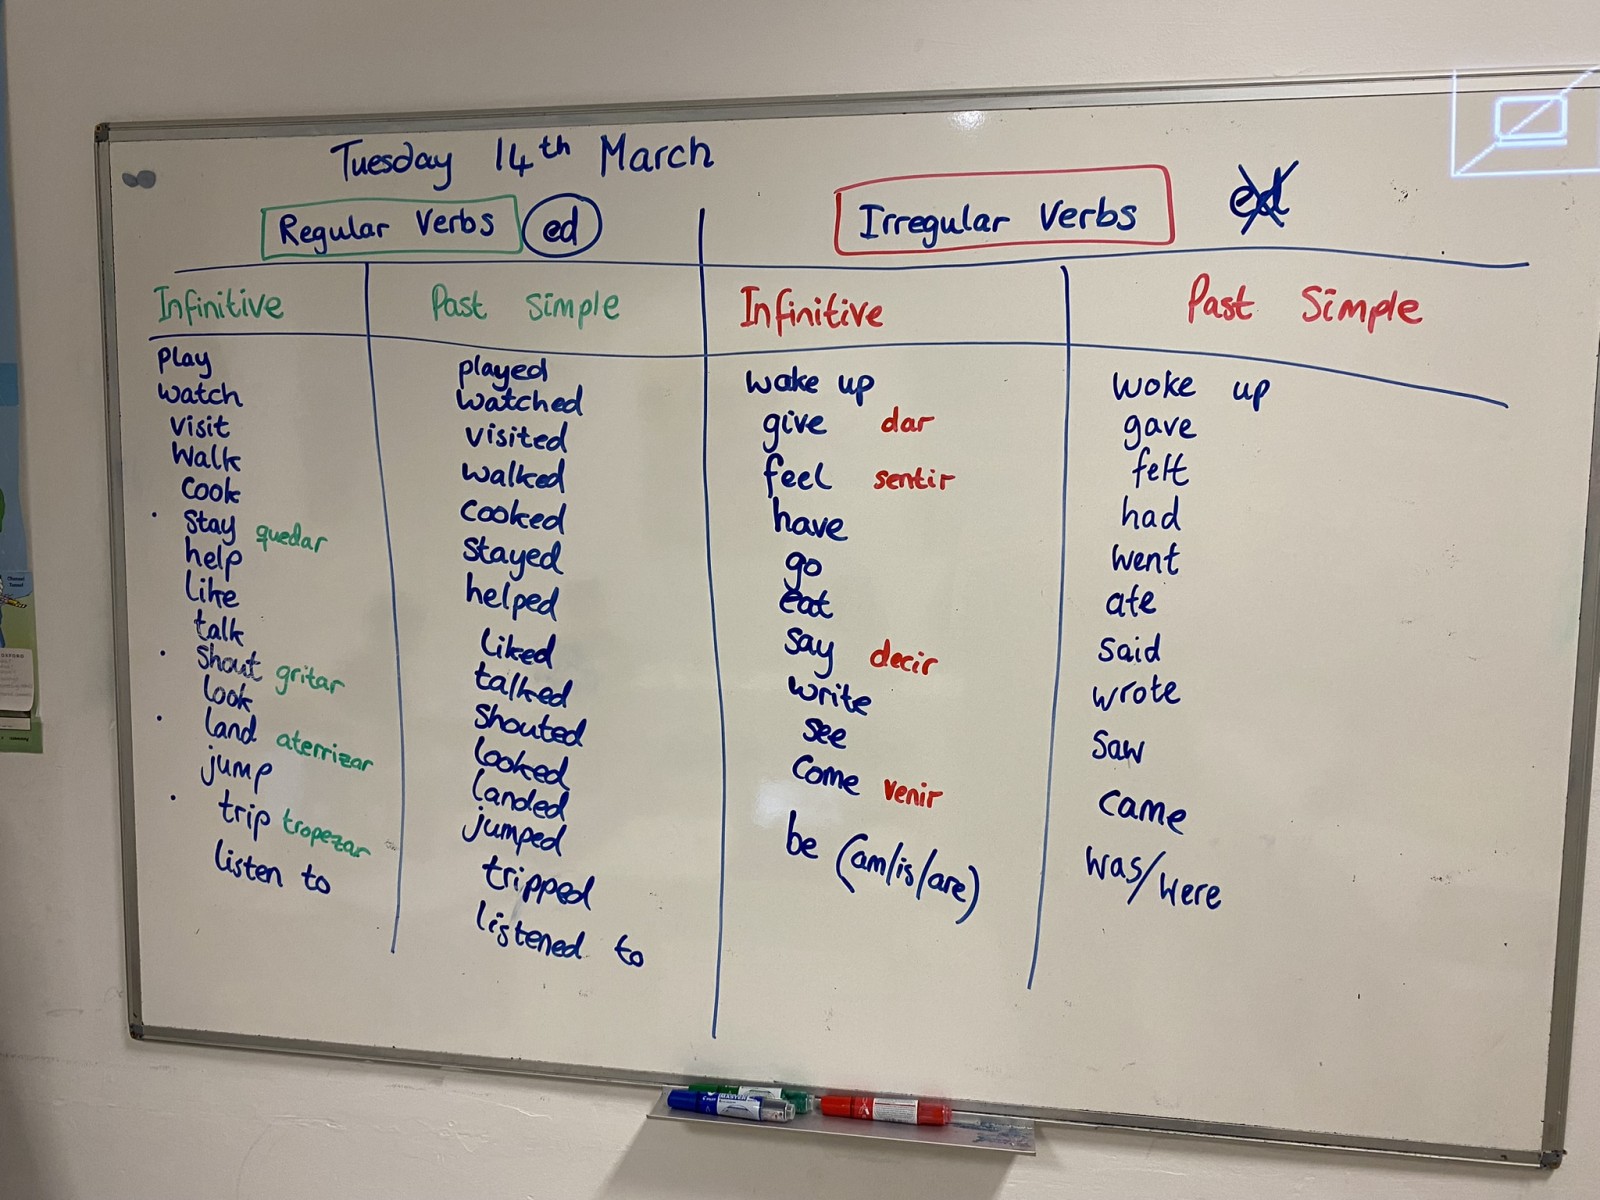 Tuesday 14th March
Regular Verbs ed
Irregular Verbs ed
Infinitive Past Simple Infinitive Past Simple
play played wake up woke up
watch watched give dar gave
visit visited feel sentir felt
walk walked have had
cook cooked go went
stay quedar stayed eat ate
help helped say decir said
like liked write wrote
talk talked see saw
shout gritar shouted come venir came
look looked be (am/is/are) was/were
land aterrizar landed
jump jumped
trip tropezar tripped
listen to listened to